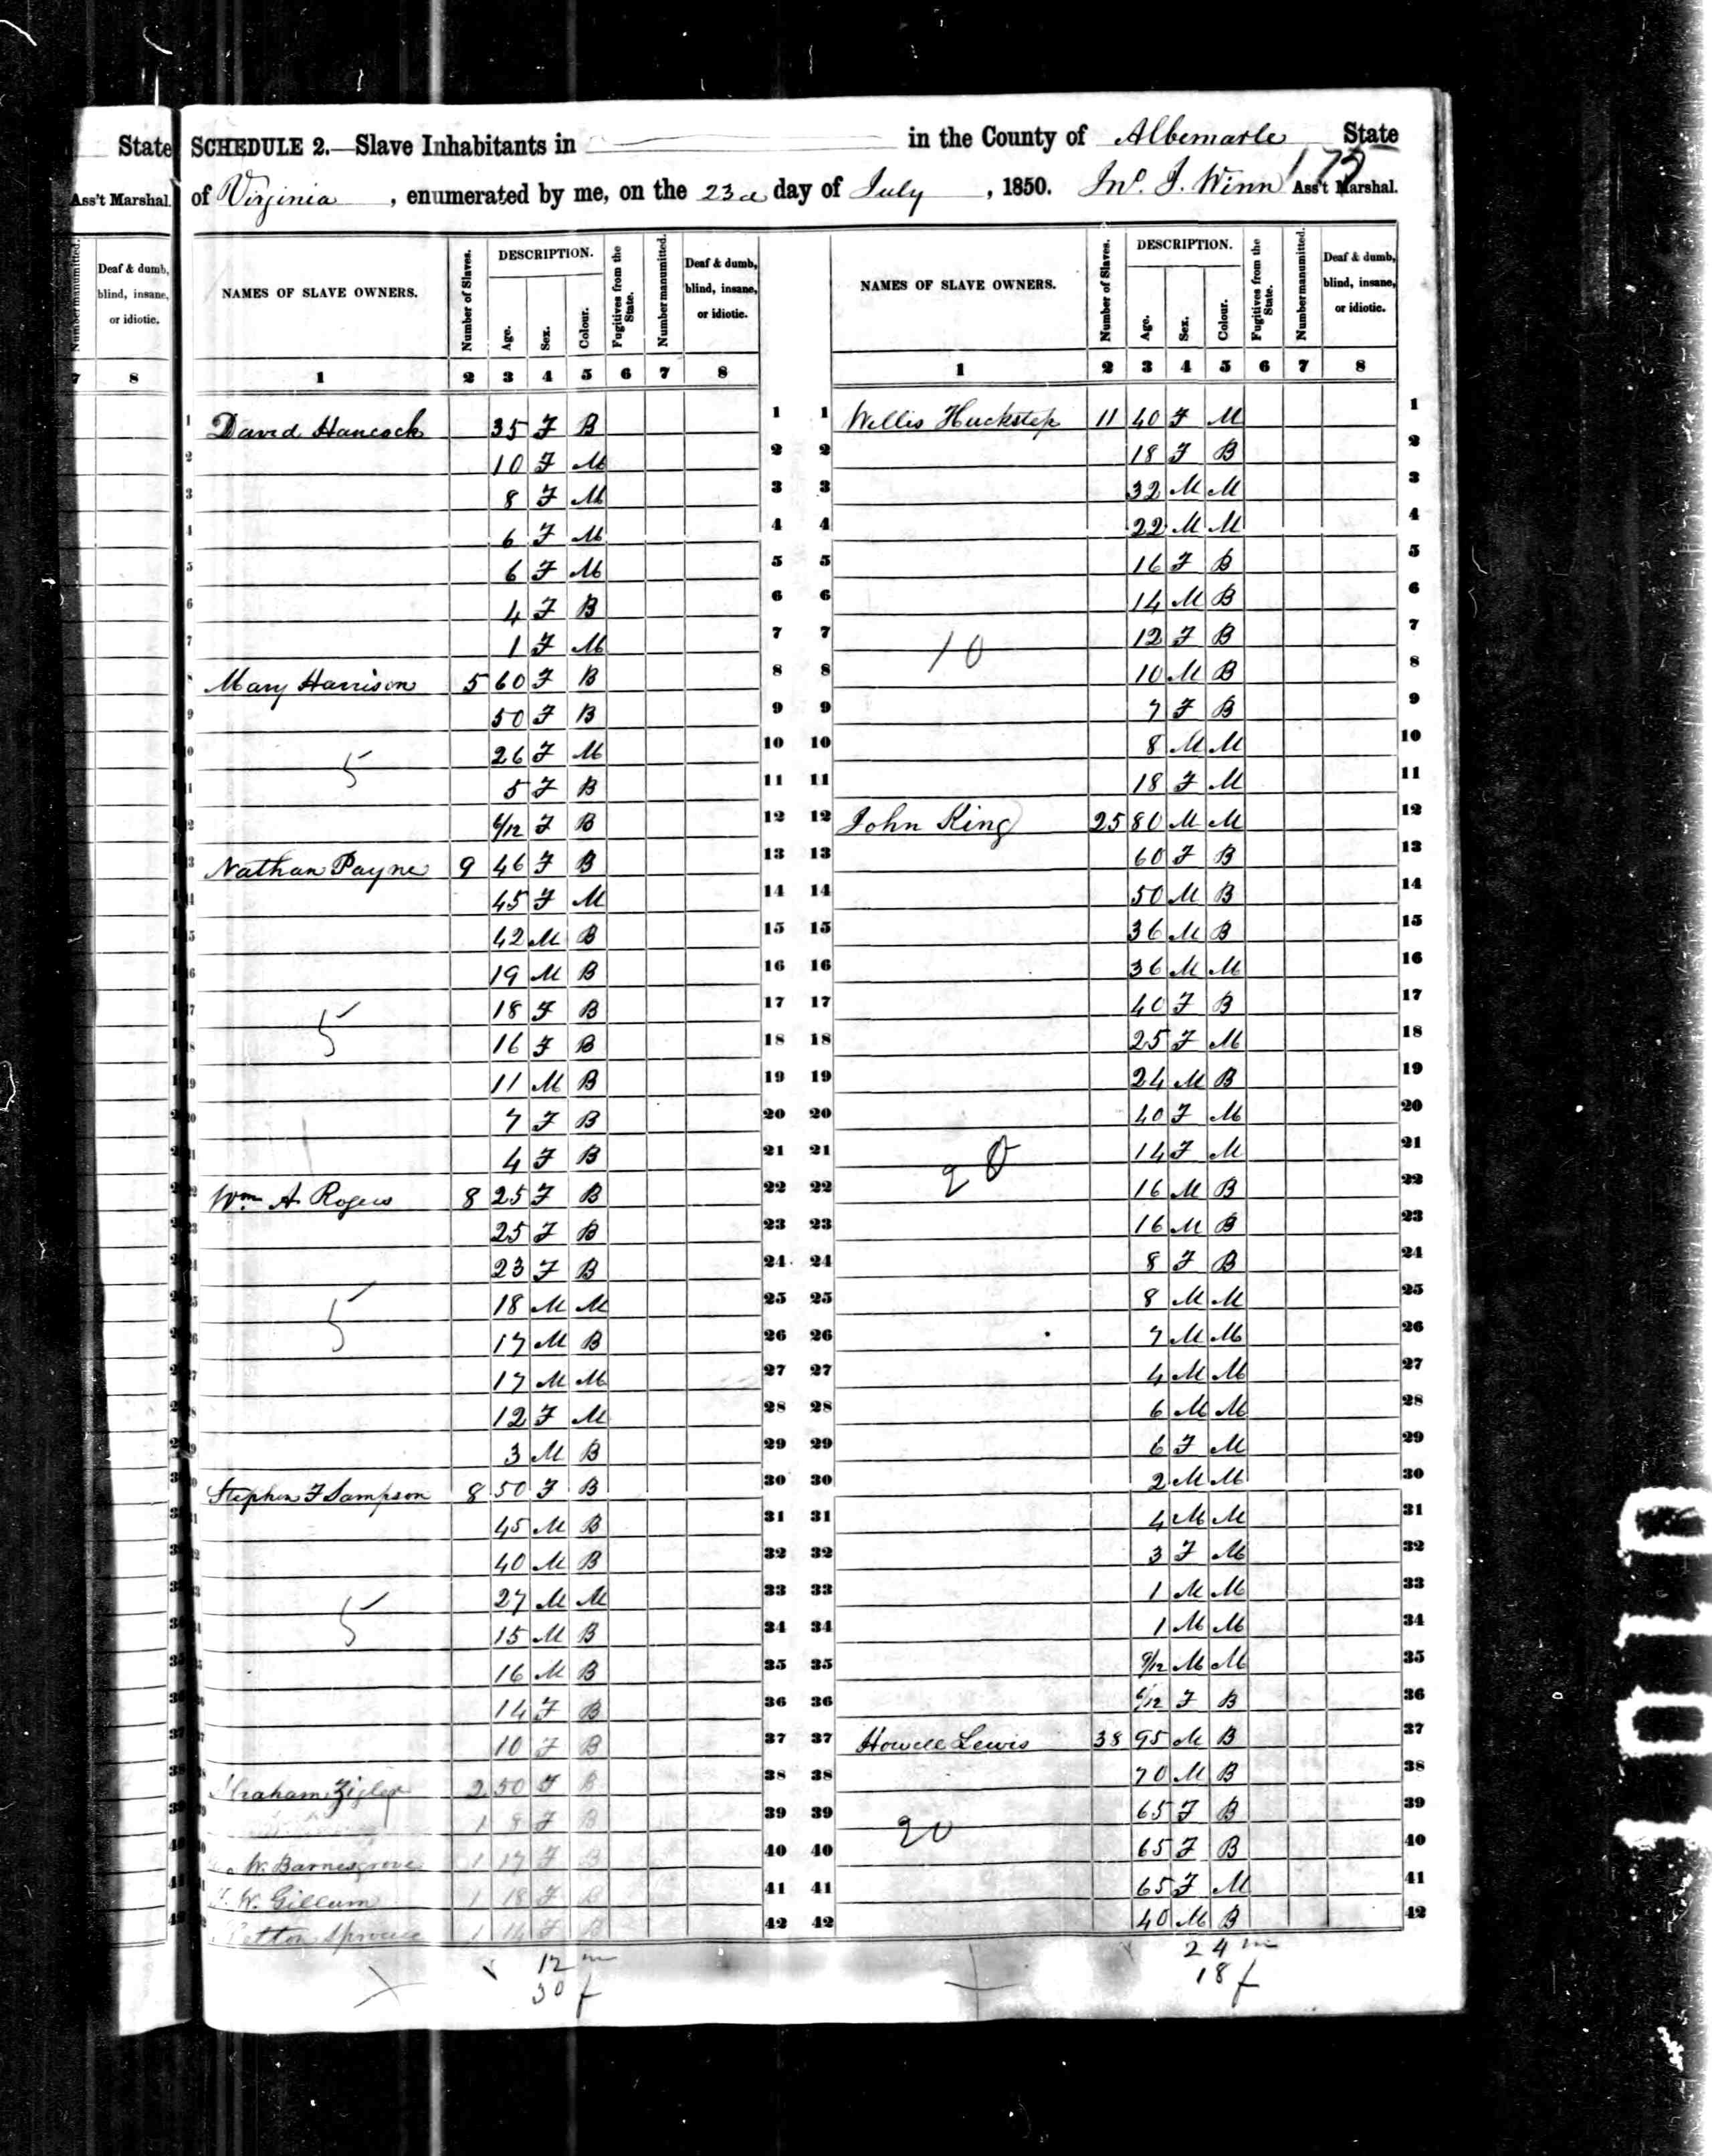 State
Ass't Marshal.
Number manumitted.
Deaf & dumb, blind, insane, or idiotic.
7 8
SCHEDULE 2.—Slave Inhabitants in in the County of Albemarle State
of Virginia, enumerated by me, on the 23d day of July, 1850. Jno. J. Winn Ass't Marshal.
175
NAMES OF SLAVE OWNERS. Number of Slaves. DESCRIPTION. Age. Sex. Colour. Fugitives from the State. Number manumitted. Deaf & dumb, blind, insane, or idiotic.
1 2 3 4 5 6 7 8
1 David Hancock 35 F B 1
2 10 F M 2
3 8 F M 3
4 6 F M 4
5 6 F M 5
6 4 F B 6
7 1 F M 7
8 Mary Harrison 5 60 F B 8
9 50 F B 9
10 26 F M 10
5
11 5 F B 11
12 6/12 F B 12
13 Nathan Payne 9 46 F B 13
14 45 F M 14
15 42 M B 15
16 19 M B 16
17 18 F B 17
5
18 16 F B 18
19 11 M B 19
20 7 F B 20
21 4 F B 21
22 Wm A Rogers 8 25 F B 22
23 25 F B 23
24 23 F B 24
25 18 M M 25
5
26 17 M B 26
27 17 M M 27
28 12 F M 28
29 3 M B 29
30 Stephen F Sampson 8 50 F B 30
31 45 M B 31
32 40 M B 32
33 27 M M 33
5
34 15 M B 34
35 16 M B 35
36 14 F B 36
37 10 F B 37
38 Zigler 2 50 F B 38
39 1 8 F B 39
40 W. Barnesgrove 1 17 F B 40
41 W. Gillum 1 18 F B 41
42 Sprouse 1 14 F B 42
12 m
30 f
NAMES OF SLAVE OWNERS. Number of Slaves. DESCRIPTION. Age. Sex. Colour. Fugitives from the State. Number manumitted. Deaf & dumb, blind, insane, or idiotic.
1 2 3 4 5 6 7 8
1 Willis Huckstep 11 40 F M 1
2 18 F B 2
3 32 M M 3
4 22 M M 4
5 16 F B 5
6 14 M B 6
7 12 F B 7
10
8 10 M B 8
9 7 F B 9
10 8 M M 10
11 18 F M 11
12 John King 25 80 M M 12
13 60 F B 13
14 50 M B 14
15 36 M B 15
16 36 M M 16
17 40 F B 17
18 25 F M 18
19 24 M B 19
20 40 F M 20
21 14 F M 21
20
22 16 M B 22
23 16 M B 23
24 8 F B 24
25 8 M M 25
26 7 M M 26
27 4 M M 27
28 6 M M 28
29 6 F M 29
30 2 M M 30
31 4 M M 31
32 3 F M 32
33 1 M M 33
34 1 M M 34
35 9/12 M M 35
36 6/12 F B 36
37 Howell Lewis 38 95 M B 37
38 70 M B 38
39 65 F B 39
20
40 65 F B 40
41 65 F M 41
42 40 M B 42
24 m
18 f
1010